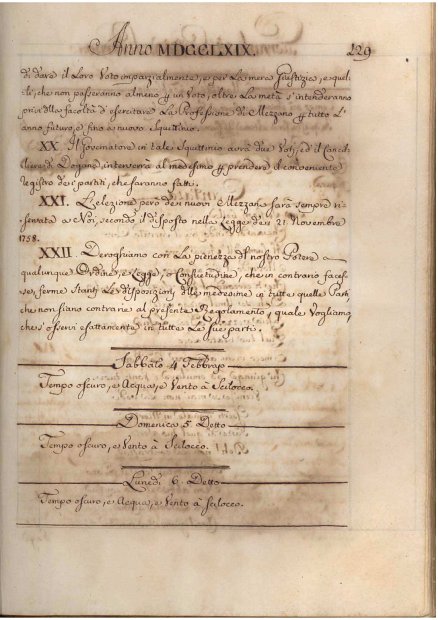 Anno MDCCLXIX. 229
di dare il Loro Voto imparzialmente, e per La mera Giustizia, e quel-
li, che non passeranno almeno p un Voto, oltre La metà s'intenderanno
privi della facoltà d'esercitare La Professione di Mezzano p tutto L'
anno futuro, e fino a nuovo Squittinio.
XX. Il Governatore in tale Squittinio avrà due Voti, ed il Cancel-
liere di Dogana interverrà al medesimo p prendere il conveniente
registro dei partiti, che saranno fatti.
XXI. L'elezione però dei nuovi Mezzani sarà sempre ri-
servata a Noi, secondo il disposto nella Legge dei 21 Novembre
1758.
XXII. Deroghiamo con La pienezza del nostro Potere a
qualunque Ordine, e Legge, o Consuetudine, che in contrario faces-
se, ferme stanti Le disposizioni delle medesime in tutte quelle Parti,
che non siano contrarie al presente Regolamento, quale Vogliamo,
che s'osservi esattamente in tutte Le sue parti.
Sabbato 4 Febbrajo
Tempo oscuro, e Acqua, e Vento à Scilocco.
Domenica 5 Detto
Tempo oscuro, e Vento à Scilocco.
Lunedì 6 Detto
Tempo oscuro, e Acqua, e Vento à Scilocco.